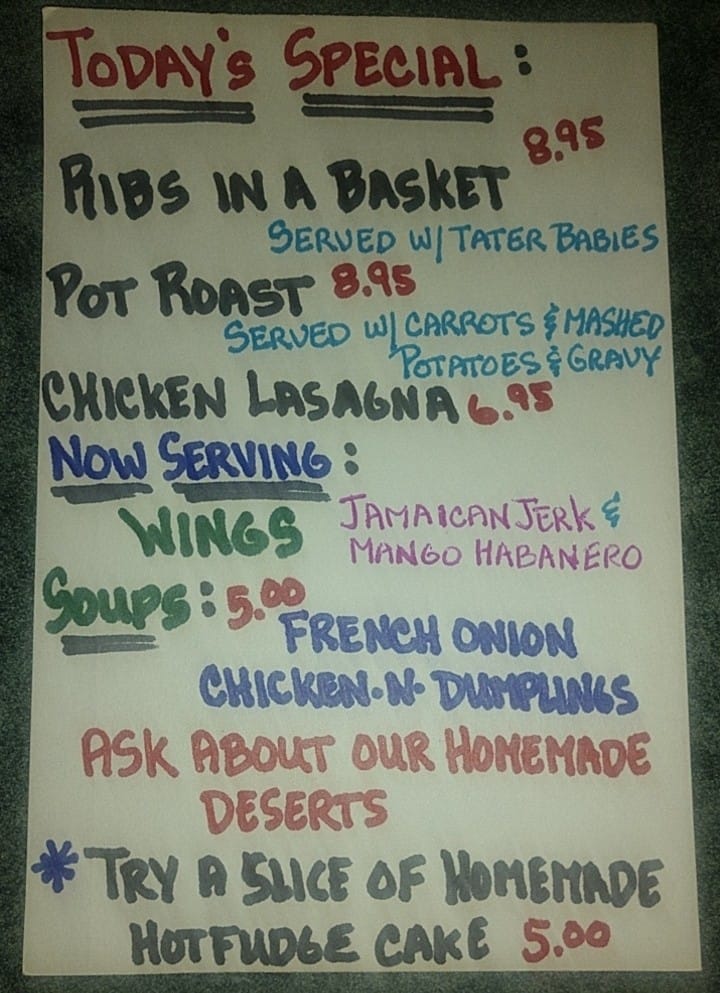 TODAY'S SPECIAL:
RIBS IN A BASKET 8.95
SERVED W/ TATER BABIES
POT ROAST 8.95
SERVED W/ CARROTS & MASHED
POTATOES & GRAVY
CHICKEN LASAGNA 6.95
NOW SERVING:
WINGS JAMAICAN JERK &
MANGO HABANERO
SOUPS: 5.00
FRENCH ONION
CHICKEN·N· DUMPLINGS
ASK ABOUT OUR HOMEMADE
DESERTS
* TRY A SLICE OF HOMEMADE
HOTFUDGE CAKE 5.00